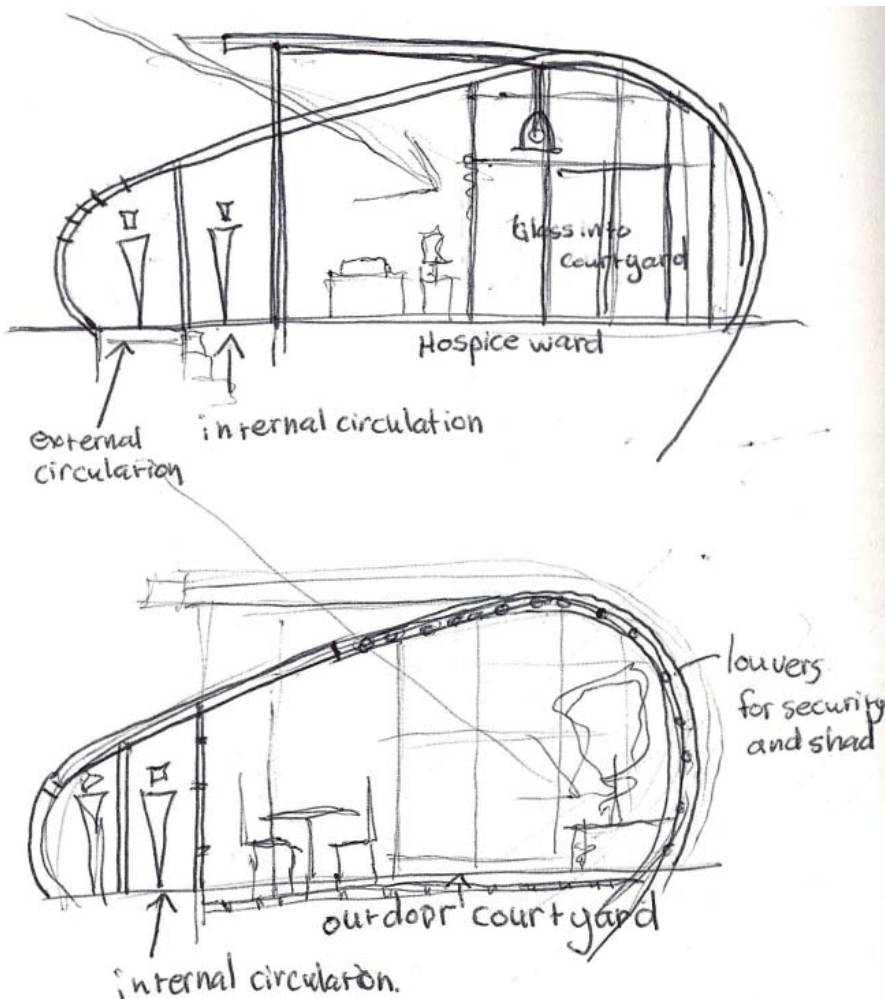 Glass into
courtyard
Hospice ward
external
circulation
internal circulation
louvers
for security
and shad
outdoor courtyard
internal circulation.